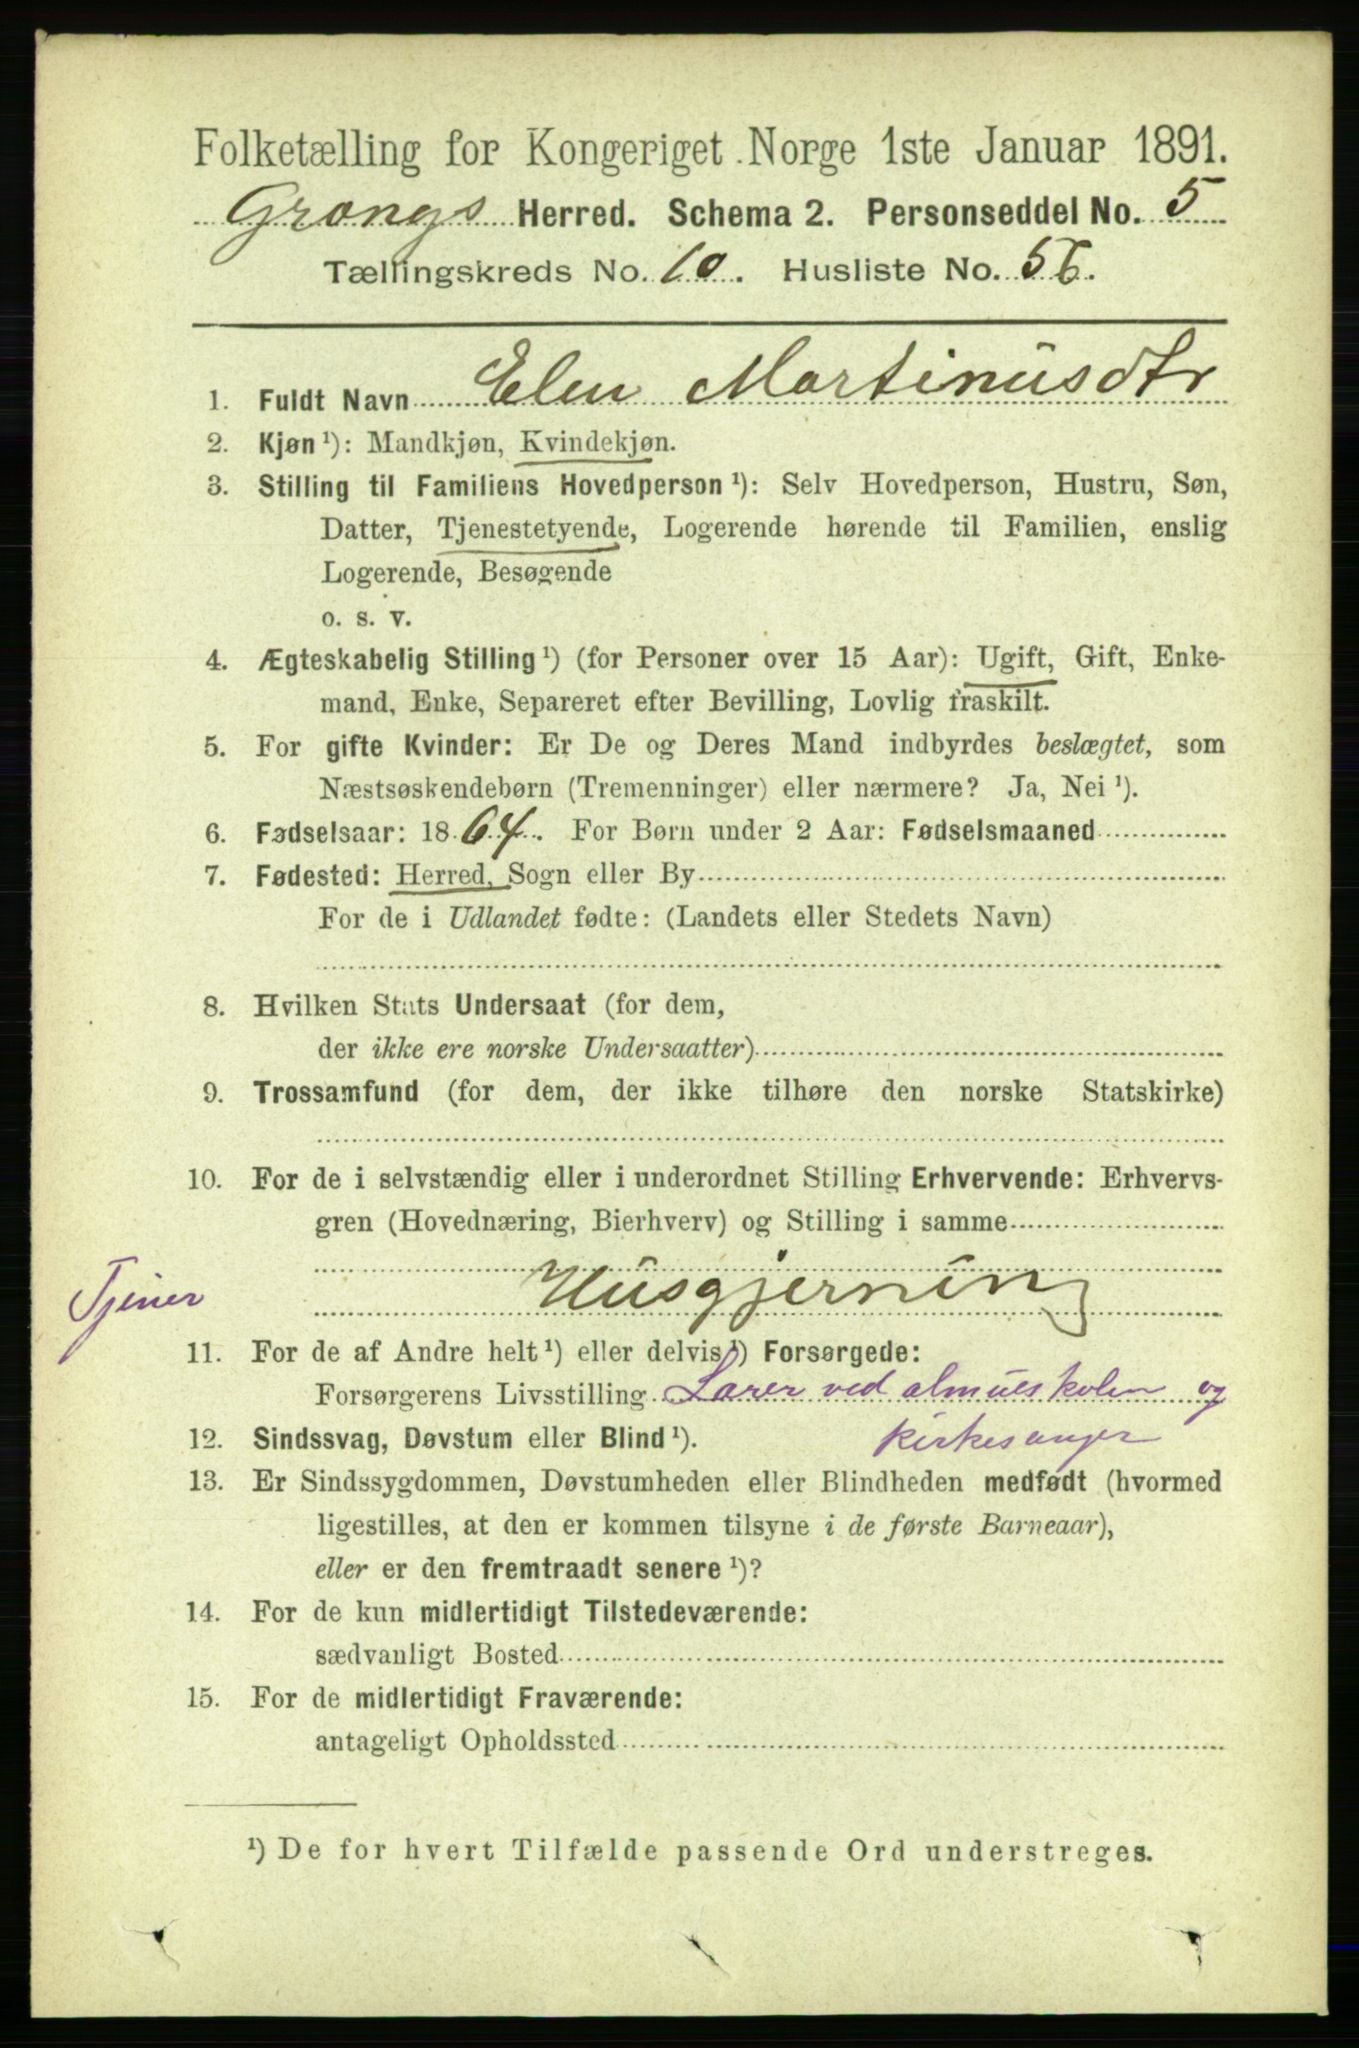 Folketælling for Kongeriget Norge 1ste Januar 1891.
Grongs Herred. Schema 2. Personseddel No. 5
Tællingskreds No. 10. Husliste No. 56.
1. Fuldt Navn Elen Martinusdtr
2. Kjøn ¹): Mandkjøn, Kvindekjøn.
3. Stilling til Familiens Hovedperson ¹): Selv Hovedperson, Hustru, Søn,
Datter, Tjenestetyende, Logerende hørende til Familien, enslig
Logerende, Besøgende
o. s. v.
4. Ægteskabelig Stilling ¹) (for Personer over 15 Aar): Ugift, Gift, Enke-
mand, Enke, Separeret efter Bevilling, Lovlig fraskilt.
5. For gifte Kvinder: Er De og Deres Mand indbyrdes beslægtet, som
Næstsøskendebørn (Tremenninger) eller nærmere? Ja, Nei ¹).
6. Fødselsaar: 1864. For Børn under 2 Aar: Fødselsmaaned
7. Fødested: Herred, Sogn eller By
For de i Udlandet fødte: (Landets eller Stedets Navn)
8. Hvilken Stats Undersaat (for dem,
der ikke ere norske Undersaatter)
9. Trossamfund (for dem, der ikke tilhøre den norske Statskirke)
10. For de i selvstændig eller i underordnet Stilling Erhvervende: Erhvervs-
gren (Hovednæring, Bierhverv) og Stilling i samme
Tjener Husgjerning
11. For de af Andre helt ¹) eller delvis ¹) Forsørgede:
Forsørgerens Livsstilling Lærer ved almueskolen og
12. Sindssvag, Døvstum eller Blind ¹). kirkesanger
13. Er Sindssygdommen, Døvstumheden eller Blindheden medfødt (hvormed
ligestilles, at den er kommen tilsyne i de første Barneaar),
eller er den fremtraadt senere ¹)?
14. For de kun midlertidigt Tilstedeværende:
sædvanligt Bosted
15. For de midlertidigt Fraværende:
antageligt Opholdssted
¹) De for hvert Tilfælde passende Ord understreges.